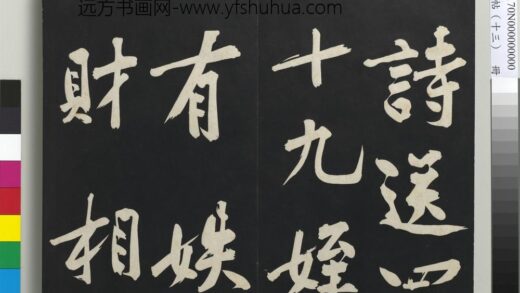 远方书画网-www.yfshuhua.com
詩送四
十九姪
有
財相
70N000000000
帖(十三) 冊